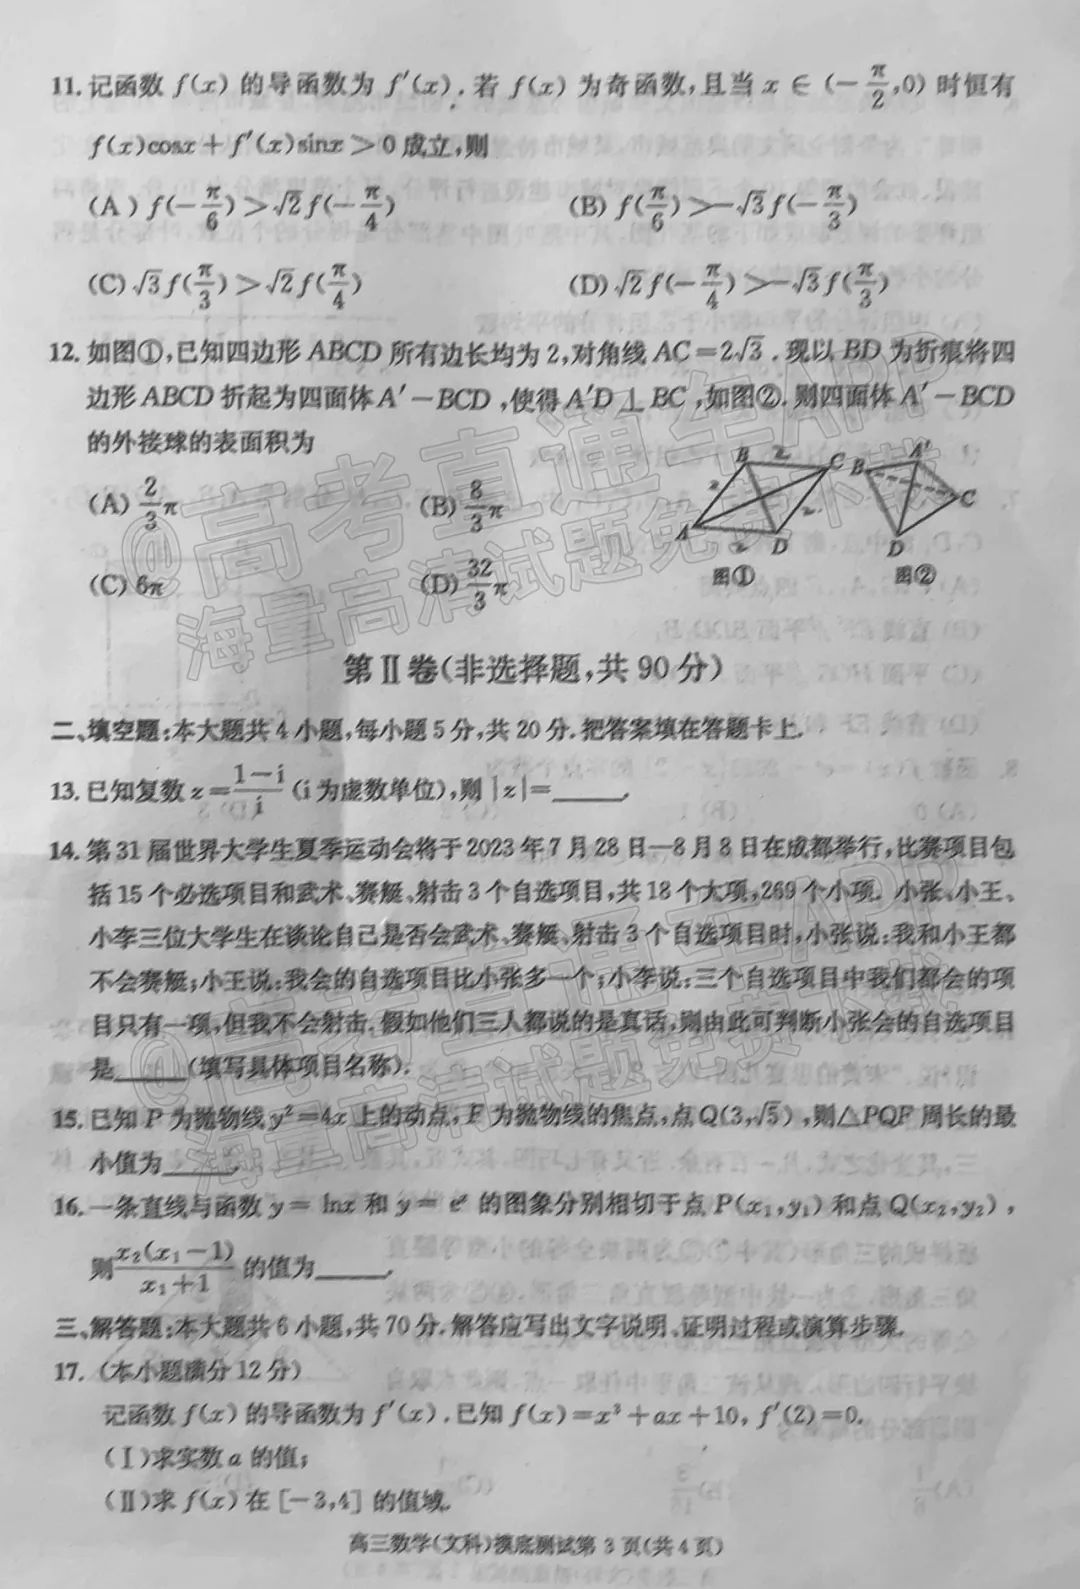 11. 记函数 f(x) 的导函数为 f′(x). 若 f(x) 为奇函数,且当 x ∈ (-π/2,0) 时恒有
f(x)cosx+f′(x)sinx>0 成立,则
(A) f(-π/6)>√2 f(-π/4) (B) f(π/6)>-√3 f(-π/3)
(C) √3 f(π/3)>√2 f(π/4) (D) √2 f(-π/4)>-√3 f(π/3)
12. 如图①,已知四边形 ABCD 所有边长均为 2,对角线 AC=2√3. 现以 BD 为折痕将四
边形 ABCD 折起为四面体 A′-BCD,使得 A′D⊥BC,如图②. 则四面体 A′-BCD
的外接球的表面积为
(A) 2/3 π (B) 8/3 π
(C) 6π (D) 32/3 π
B 2 C B A′
2 C
A 2 D 2 D
图① 图②
第Ⅱ卷(非选择题,共 90 分)
二、填空题:本大题共 4 小题,每小题 5 分,共 20 分. 把答案填在答题卡上.
13. 已知复数 z=(1-i)/i (i 为虚数单位),则 |z|=______.
14. 第 31 届世界大学生夏季运动会将于 2023 年 7 月 28 日—8 月 8 日在成都举行,比赛项目包
括 15 个必选项目和武术、赛艇、射击 3 个自选项目,共 18 个大项,269 个小项. 小张、小王、
小李三位大学生在谈论自己是否会武术、赛艇、射击 3 个自选项目时,小张说:我和小王都
不会赛艇;小王说:我会的自选项目比小张多一个;小李说:三个自选项目中我们都会的项
目只有一项,但我不会射击. 假如他们三人都说的是真话,则由此可判断小张会的自选项目
是______(填写具体项目名称).
15. 已知 P 为抛物线 y²=4x 上的动点,F 为抛物线的焦点,点 Q(3,√5),则△PQF 周长的最
小值为______.
16. 一条直线与函数 y=lnx 和 y=eˣ 的图象分别相切于点 P(x₁,y₁) 和点 Q(x₂,y₂),
则 x₂(x₁-1)/(x₁+1) 的值为______.
三、解答题:本大题共 6 小题,共 70 分. 解答应写出文字说明、证明过程或演算步骤.
17. (本小题满分 12 分)
记函数 f(x) 的导函数为 f′(x). 已知 f(x)=x³+ax+10, f′(2)=0.
(Ⅰ)求实数 a 的值;
(Ⅱ)求 f(x) 在 [-3,4] 的值域.
高三数学(文科)摸底测试第 3 页(共 4 页)
@高考直通车APP
海量高清试题免费下载
@高考直通车APP
海量高清试题免费下载